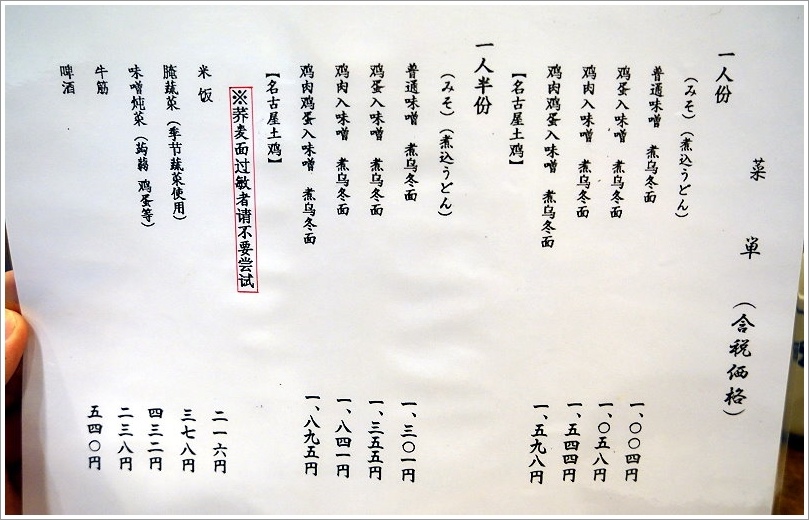 菜 単 (含税価格)
一人份
(みそ) (煮込うどん)
普通味噌 煮乌冬面 一、〇〇四円
鸡蛋入味噌 煮乌冬面 一、〇五八円
鸡肉入味噌 煮乌冬面 一、五四四円
鸡肉鸡蛋入味噌 煮乌冬面 一、五九八円
【名古屋土鸡】
一人半份
(みそ) (煮込うどん)
普通味噌 煮乌冬面 一、三〇一円
鸡蛋入味噌 煮乌冬面 一、三五五円
鸡肉入味噌 煮乌冬面 一、八四一円
鸡肉鸡蛋入味噌 煮乌冬面 一、八九五円
【名古屋土鸡】
※荞麦面过敏者请不要尝试
米饭 二一六円
腌蔬菜(季节蔬菜使用) 三七八円
味噌炖菜(蒟蒻 鸡蛋等) 四三二円
牛筋 二三八円
啤酒 五四〇円